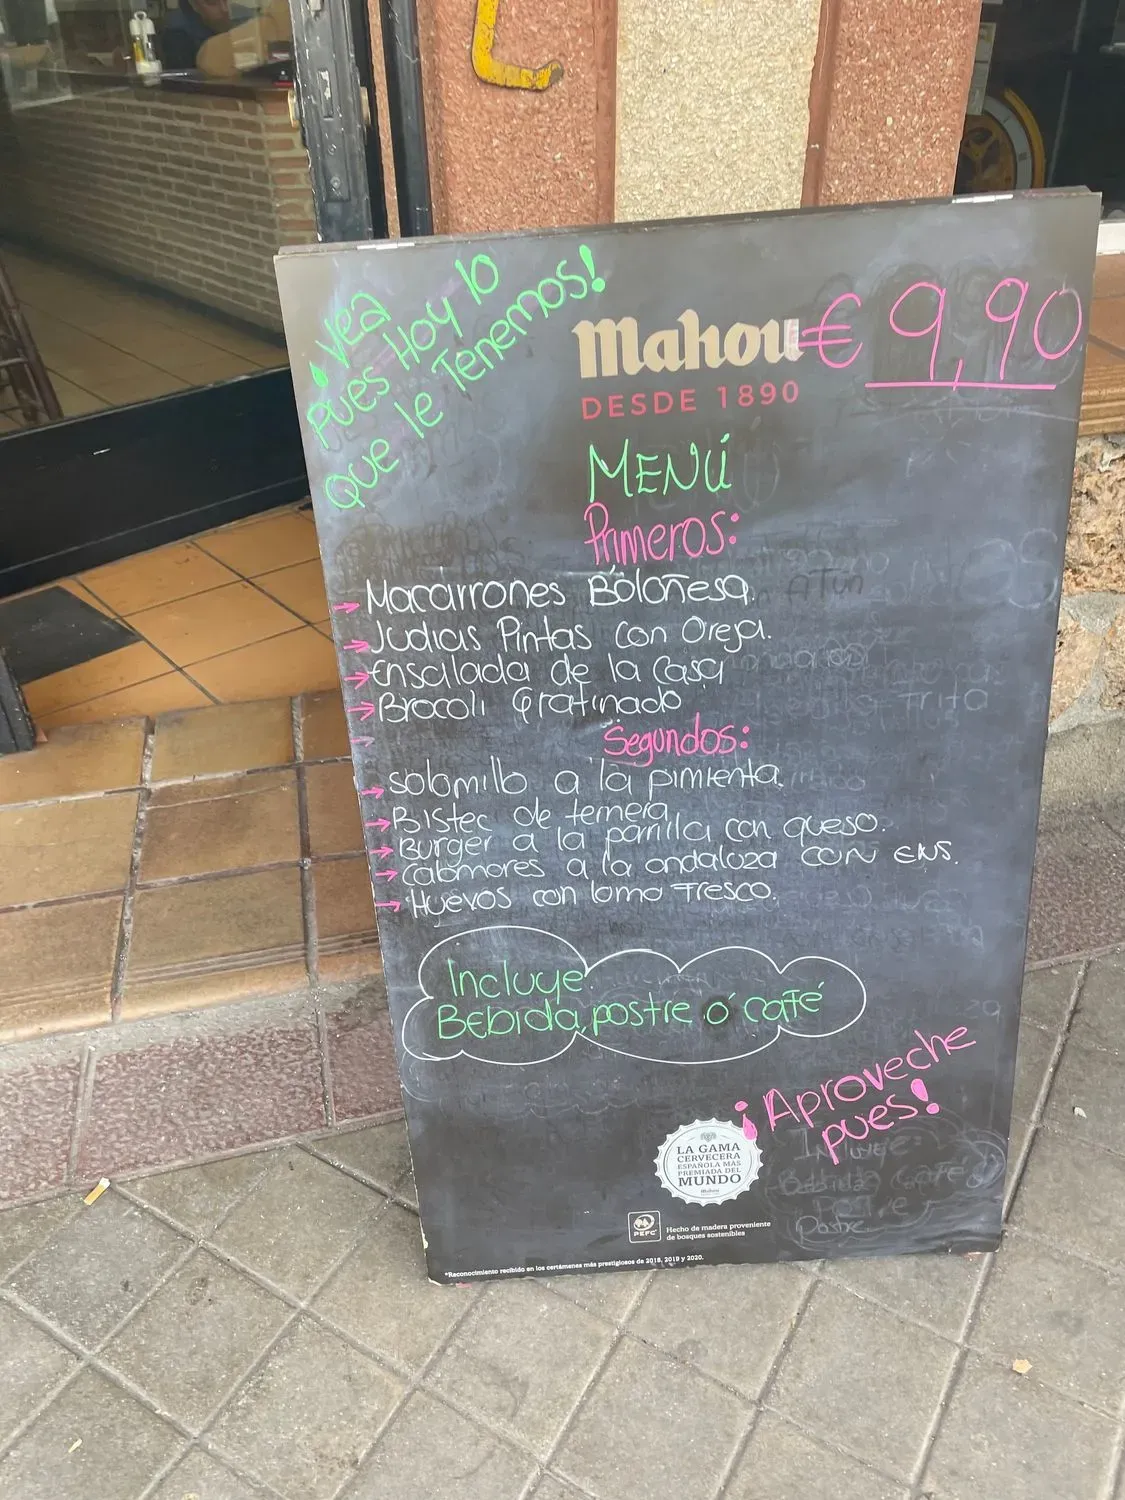 ¡Vea
pues Hoy lo
que le Tenemos!
Mahou
DESDE 1890
€ 9,90
MENÚ
Primeros:
→ Macarrones Boloñesa.
→ Judias Pintas con Oreja.
→ Ensalada de la Casa
→ Brocoli Gratinado
Segundos:
→ solomillo a la pimienta.
→ Bistec de ternera
→ Burger a la parrilla con queso.
→ calamares a la andaluza con ENS.
→ Huevos con lomo Fresco.
Incluye
Bebida, postre ó café
¡Aproveche
pues!
LA GAMA
CERVECERA
ESPAÑOLA MÁS
PREMIADA DEL
MUNDO
Mahou
PEFC
Hecho de madera proveniente
de bosques sostenibles
Incluye:
Bebida
Postre
*Reconocimiento recibido en los certámenes más prestigiosos de 2018, 2019 y 2020.